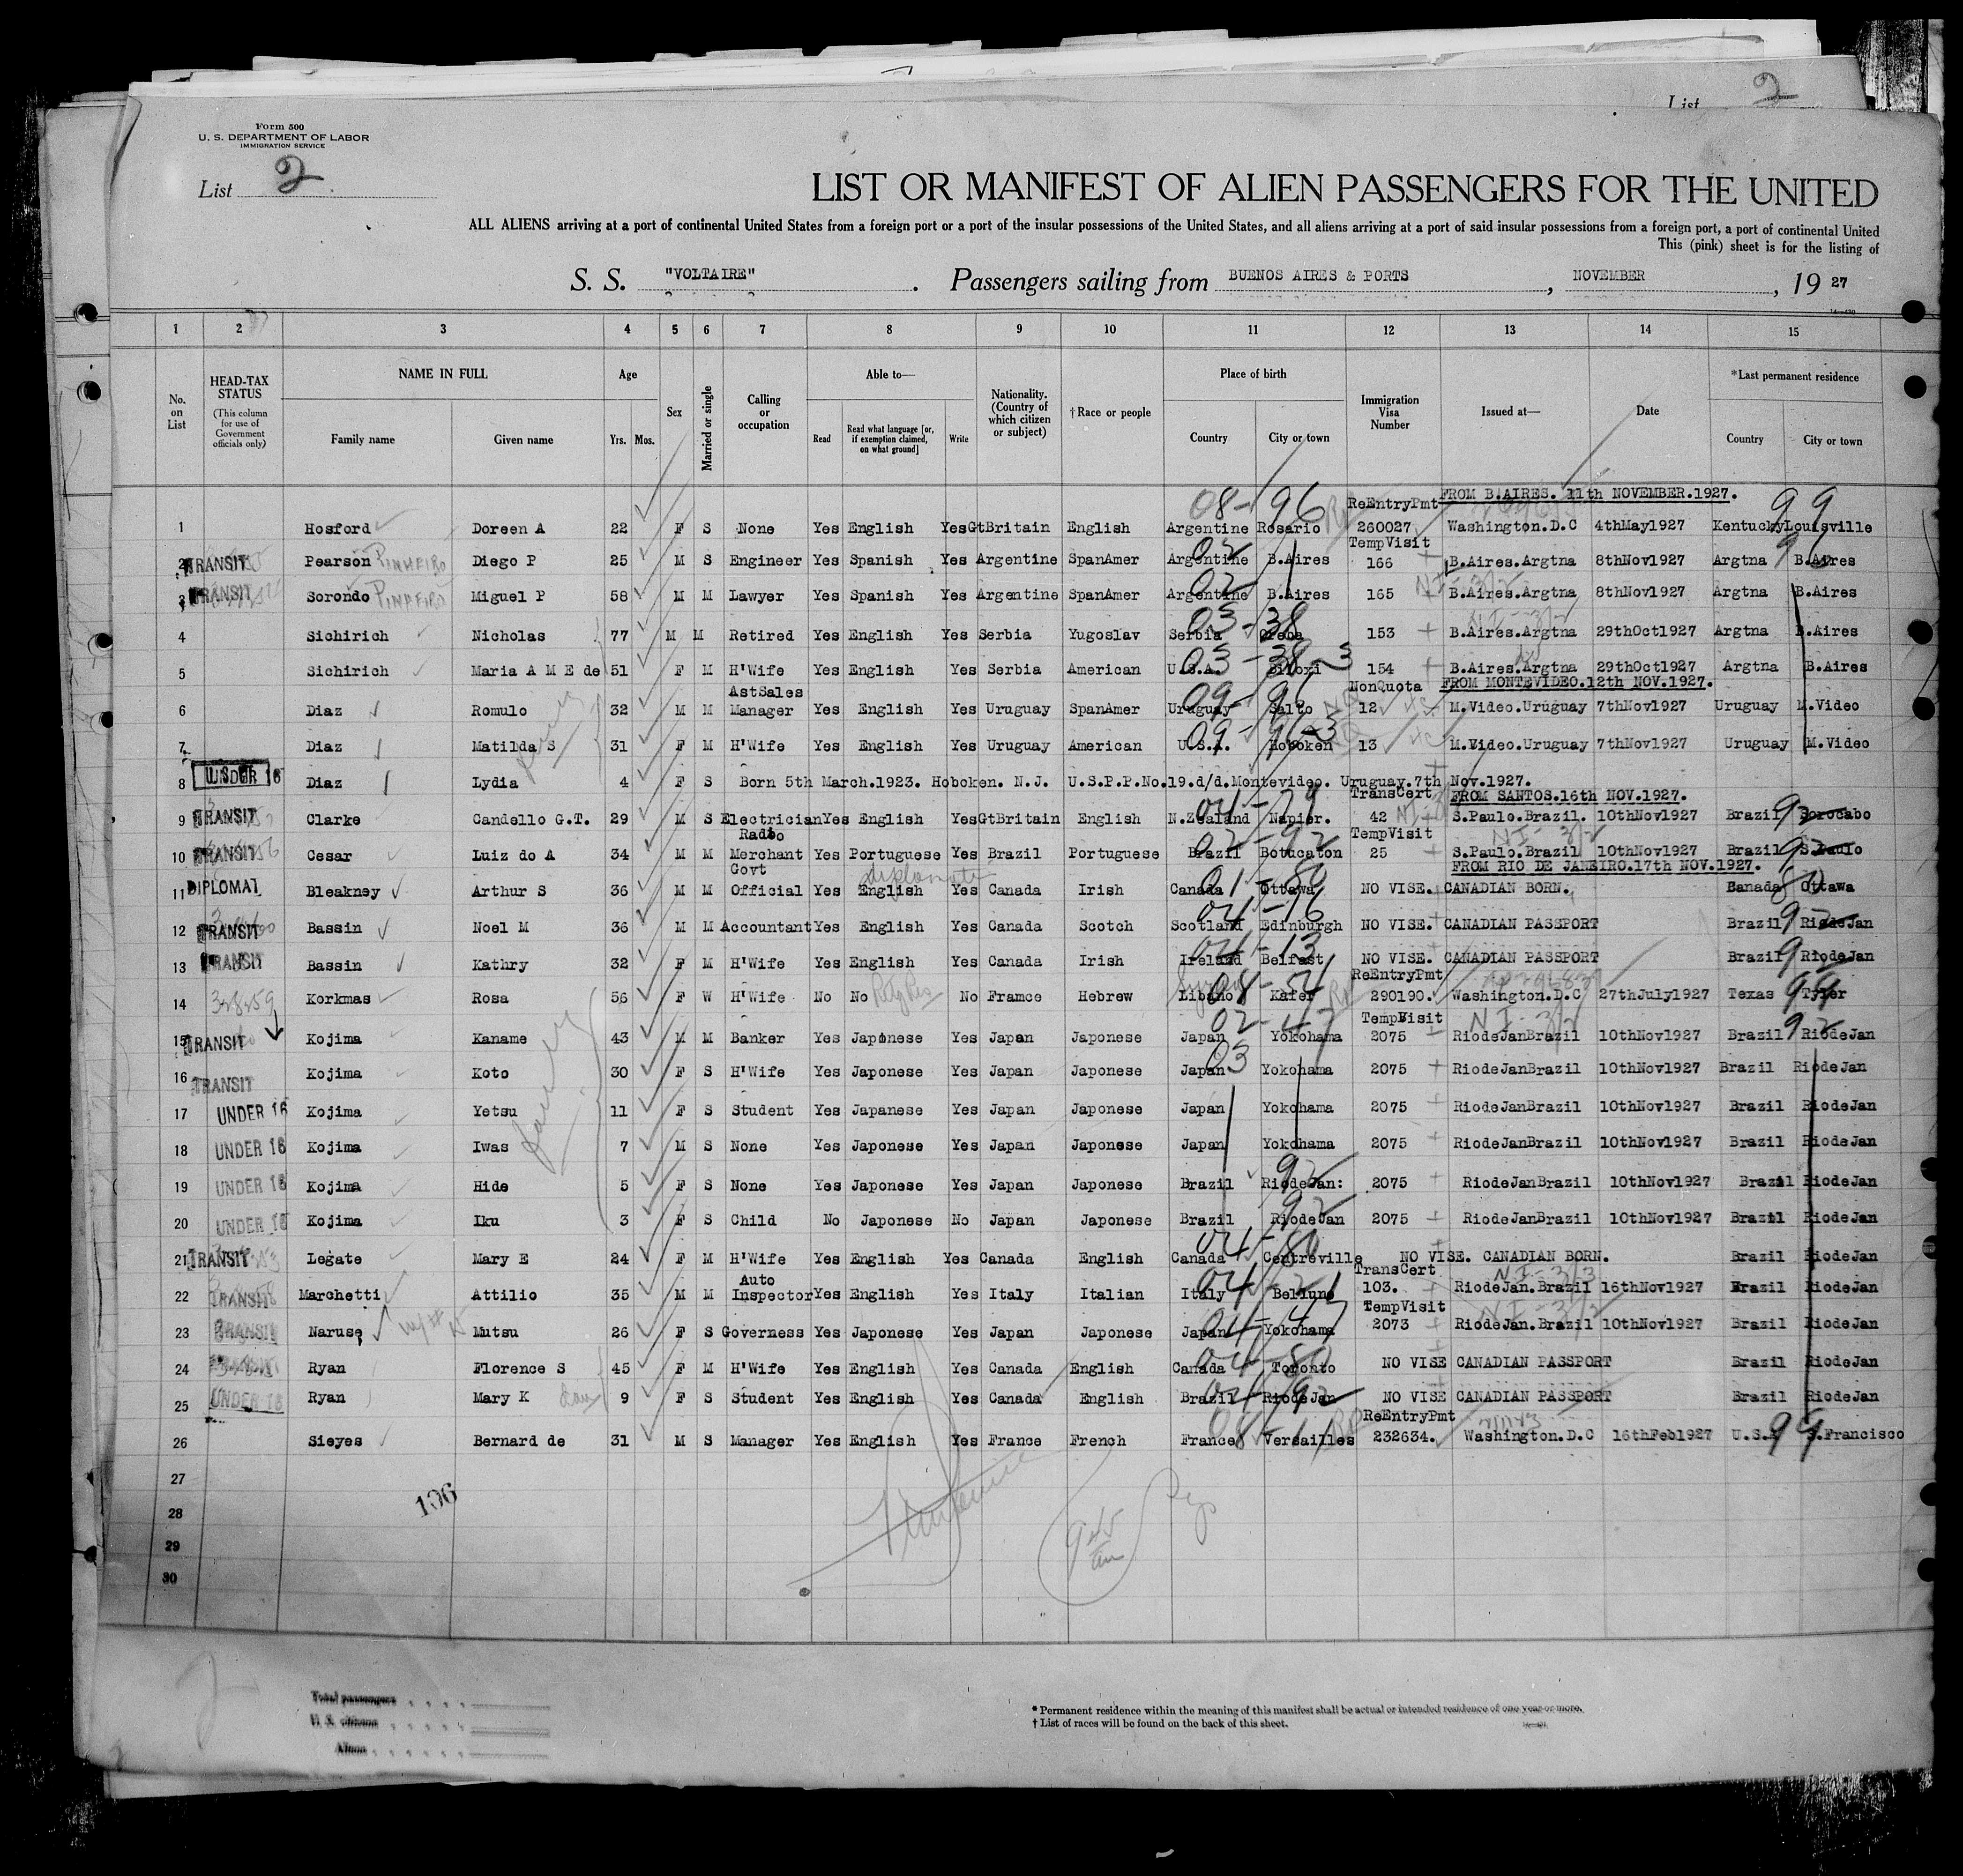 List 2
Form 500
U. S. DEPARTMENT OF LABOR
IMMIGRATION SERVICE
List 2
LIST OR MANIFEST OF ALIEN PASSENGERS FOR THE UNITED
ALL ALIENS arriving at a port of continental United States from a foreign port or a port of the insular possessions of the United States, and all aliens arriving at a port of said insular possessions from a foreign port, a port of continental United
This (pink) sheet is for the listing of
S. S. "VOLTAIRE" . Passengers sailing from BUENOS AIRES & PORTS , NOVEMBER , 19 27
1 2 3 4 5 6 7 8 9 10 11 12 13 14 15
No. on List HEAD-TAX STATUS (This column for use of Government officials only) NAME IN FULL Family name Given name Age Yrs. Mos. Sex Married or single Calling or occupation Able to— Read Read what language [or, if exemption claimed, on what ground] Write Nationality. (Country of which citizen or subject) † Race or people Place of birth Country City or town Immigration Visa Number Issued at— Date *Last permanent residence Country City or town
08-96 ReEntryPmt FROM B.AIRES. 11th NOVEMBER.1927. 99
1 Hosford Doreen A 22 F S None Yes English Yes GtBritain English Argentine Rosario 260027 Washington.D.C 4thMay1927 Kentucky Louisville
TempVisit
2 TRANSIT Pearson PINHEIRO Diego P 25 M S Engineer Yes Spanish Yes Argentine SpanAmer Argentine B.Aires 166 B.Aires.Argtna 8thNov1927 Argtna B.Aires
3 TRANSIT Sorondo PINHEIRO Miguel P 58 M M Lawyer Yes Spanish Yes Argentine SpanAmer Argentine B.Aires 165 B.Aires.Argtna 8thNov1927 Argtna B.Aires
4 Sichirich Nicholas 77 M M Retired Yes English Yes Serbia Yugoslav Serbia 153 B.Aires.Argtna 29thOct1927 Argtna B.Aires
5 Sichirich Maria A M E de 51 F M H'Wife Yes English Yes Serbia American U.S.A. Biloxi 154 B.Aires.Argtna 29thOct1927 Argtna B.Aires
AstSales NonQuota FROM MONTEVIDEO.12th NOV.1927.
6 Diaz Romulo 32 M M Manager Yes English Yes Uruguay SpanAmer Uruguay Salto 12 M.Video.Uruguay 7thNov1927 Uruguay M.Video
7 Diaz Matilda S 31 F M H'Wife Yes English Yes Uruguay American U.S.A. Hoboken 13 M.Video.Uruguay 7thNov1927 Uruguay M.Video
8 UNDER 16 Diaz Lydia 4 F S Born 5th March.1923. Hoboken. N.J. U.S.P.P.No.19.d/d.Montevideo. Uruguay.7th Nov.1927.
TransCert FROM SANTOS.16th NOV.1927.
9 TRANSIT Clarke Candello G.T. 29 M S Electrician Yes English Yes GtBritain English N.Zealand Napier. 42 S.Paulo.Brazil. 10thNov1927 Brazil Sorocabo
Radio TempVisit
10 TRANSIT Cesar Luiz do A 34 M M Merchant Yes Portuguese Yes Brazil Portuguese Brazil Botucaton 25 S.Paulo.Brazil 10thNov1927 Brazil S.Paulo
Govt diplomat FROM RIO DE JANEIRO.17th NOV.1927.
11 DIPLOMAT Bleakney Arthur S 36 M M Official Yes English Yes Canada Irish Canada Ottawa NO VISE. CANADIAN BORN. Canada Ottawa
12 TRANSIT Bassin Noel M 36 M M Accountant Yes English Yes Canada Scotch Scotland Edinburgh NO VISE. CANADIAN PASSPORT Brazil RiodeJan
13 TRANSIT Bassin Kathry 32 F M H'Wife Yes English Yes Canada Irish Ireland Belfast NO VISE. CANADIAN PASSPORT Brazil RiodeJan
ReEntryPmt
14 328259 Korkmas Rosa 56 F W H'Wife No No No Framce Hebrew Libano Kafer 290190. Washington.D.C 27thJuly1927 Texas Tyler
TempVisit
15 TRANSIT Kojima Kaname 43 M M Banker Yes Japonese Yes Japan Japonese Japan Yokohama 2075 RiodeJanBrazil 10thNov1927 Brazil RiodeJan
16 TRANSIT Kojima Koto 30 F S H'Wife Yes Japonese Yes Japan Japonese Japan Yokohama 2075 RiodeJanBrazil 10thNov1927 Brazil RiodeJan
17 UNDER 16 Kojima Yetsu 11 F S Student Yes Japanese Yes Japan Japonese Japan Yokohama 2075 RiodeJanBrazil 10thNov1927 Brazil RiodeJan
18 UNDER 16 Kojima Iwas 7 M S None Yes Japonese Yes Japan Japonese Japan Yokohama 2075 RiodeJanBrazil 10thNov1927 Brazil RiodeJan
19 UNDER 16 Kojima Hide 5 F S None Yes Japonese Yes Japan Japonese Brazil RiodeJan: 2075 RiodeJanBrazil 10thNov1927 Brazil RiodeJan
20 UNDER 16 Kojima Iku 3 F S Child No Japonese No Japan Japonese Brazil RiodeJan 2075 RiodeJanBrazil 10thNov1927 Brazil RiodeJan
21 TRANSIT Legate Mary E 24 F M H'Wife Yes English Yes Canada English Canada Centreville NO VISE. CANADIAN BORN. Brazil RiodeJan
Auto TransCert
22 TRANSIT Marchetti Attilio 35 M M Inspector Yes English Yes Italy Italian Italy Belluno 103. RiodeJan.Brazil 16thNov1927 Brazil RiodeJan
TempVisit
23 TRANSIT Naruse Mutsu 26 F S Governess Yes Japonese Yes Japan Japonese Japan Yokohama 2073 RiodeJan.Brazil 10thNov1927 Brazil RiodeJan
24 Ryan Florence S 45 F M H'Wife Yes English Yes Canada English Canada Toronto NO VISE CANADIAN PASSPORT Brazil RiodeJan
25 UNDER 16 Ryan Mary K 9 F S Student Yes English Yes Canada English Brazil RiodeJan NO VISE CANADIAN PASSPORT Brazil RiodeJan
ReEntryPmt
26 Sieyes Bernard de 31 M S Manager Yes English Yes France French France Versailles 232634. Washington.D.C 16thFeb1927 U.S.A S.Francisco
27
28 196
29
30
Total passengers
U. S. citizens
Aliens
* Permanent residence within the meaning of this manifest shall be actual or intended residence of one year or more.
† List of races will be found on the back of this sheet.